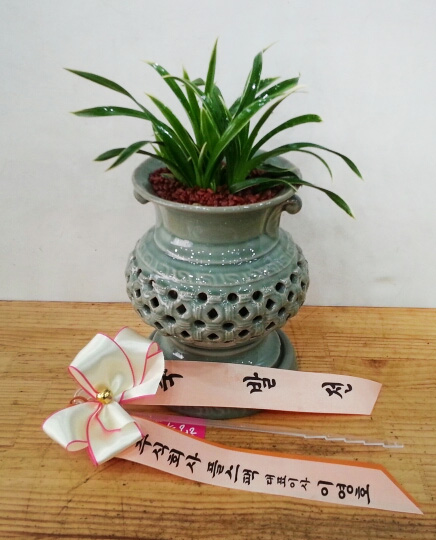 축 발 전
주식회사 플스팩 대표이사 이영호